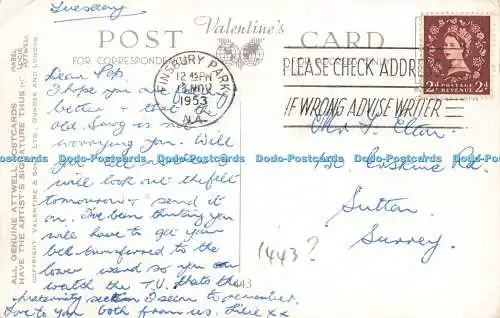 Tuesday
Valentine's
POST CARD
FOR CORRESPONDENCE
FINSBURY PARK
12 45PM
NOV
1953
N.4.
PLEASE CHECK ADDRESS
IF WRONG ADVISE WRITER
POSTAGE REVENUE
2d 2d
Dear Pop
I hope you are feeling
better + that the
old lung is not
worrying you. Will
you tell I
will look out the felt
tomorrow + send it
on. I've been thinking you
will have to get your
bed transferred to the
lower ward so you can
watch the T.V. thats the
maternity section I seem to remember.
Love to you both from us. Lilie xx
Mr
Rd.
Sutton
Surrey.
1443?
443
ALL GENUINE ATTWELL POSTCARDS
HAVE THE ARTIST'S SIGNATURE THUS
MABEL
LUCIE
ATTWELL
COPYRIGHT VALENTINE & SONS LTD. DUNDEE AND LONDON
www.postcards-worldwide.co.uk